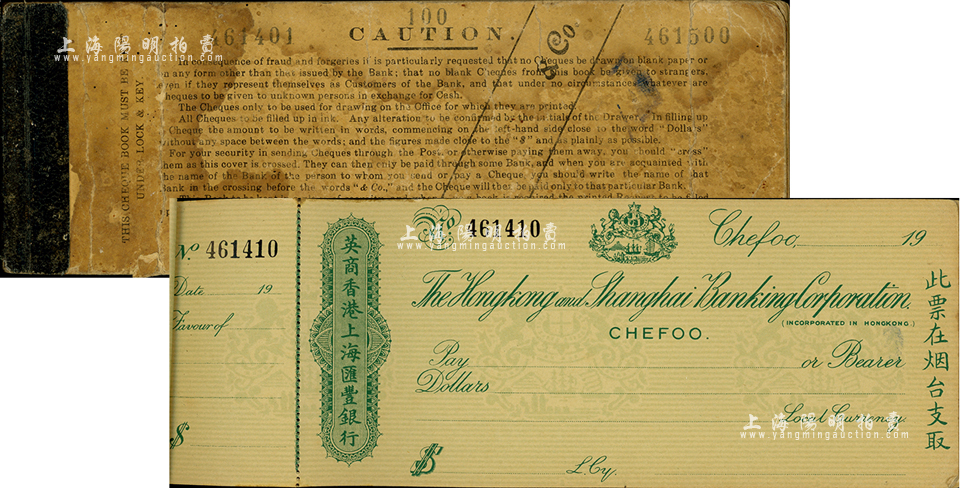 THIS CHEQUE BOOK MUST BE
UNDER LOCK & KEY.
100
461401 CAUTION. 461500
& Co.
In consequence of fraud and forgeries it is particularly requested that no Cheques be drawn on blank paper or
on any form other than that issued by the Bank; that no blank Cheques from this book be given to strangers,
even if they represent themselves as Customers of the Bank, and that under no circumstances whatever are
Cheques to be given to unknown persons in exchange for Cash.
The Cheques only to be used for drawing on the Office for which they are printed.
All Cheques to be filled up in ink. Any alteration to be confirmed by the initials of the Drawer. In filling up
Cheque the amount to be written in words, commencing on the left-hand side close to the word "Dollars"
without any space between the words; and the figures made close to the "$" and as plainly as possible.
For your security in sending Cheques through the Post, or otherwise paying them away, you should "cross"
them as this cover is crossed. They can then only be paid through some Bank, and when you are acquainted with
the name of the Bank of the person to whom you send or pay a Cheque, you should write the name of that
Bank in the crossing before the words "& Co.," and the Cheque will then be paid only to that particular Bank.
上海陽明拍賣
www.yangmingauction.com
上海陽明拍賣
www.yangmingauction.com
No. 461410
Date 19
Favour of
$
英商香港上海匯豐銀行
No. 461410
Chefoo 19
The Hongkong and Shanghai Banking Corporation.
(INCORPORATED IN HONGKONG.)
CHEFOO.
Pay or Bearer
Dollars
Local Currency.
$ L.Cy.
此票在烟台支取
上海陽明拍賣
www.yangmingauction.com
上海陽明拍賣
www.yangmingauction.com